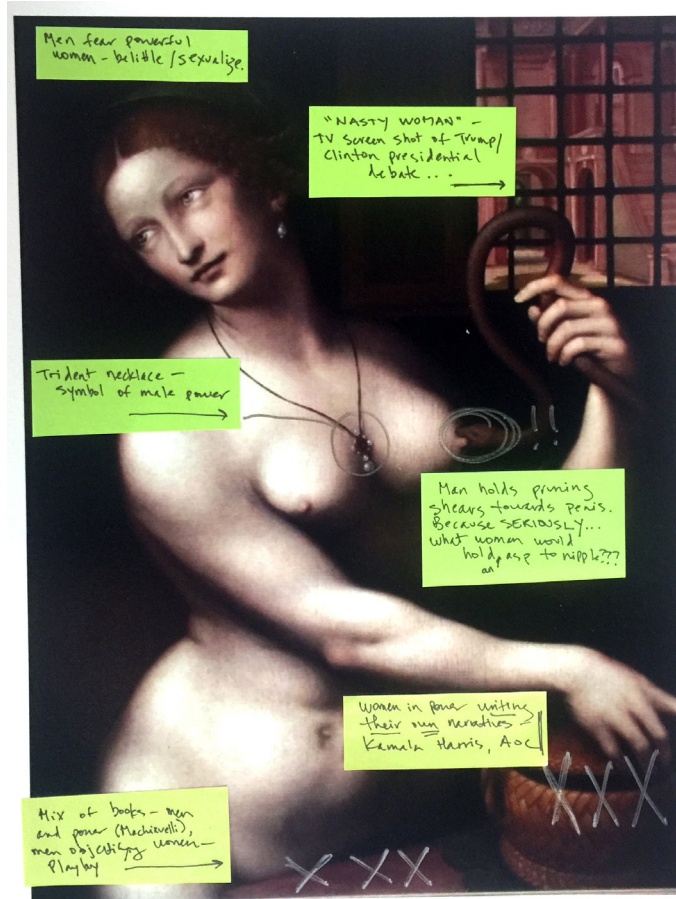 Men fear powerful
women - belittle/sexualize.
"NASTY WOMAN" -
TV screen shot of Trump/
Clinton presidential
debate...
Trident necklace -
symbol of male power
!!
Man holds pruning
shears towards penis.
Because SERIOUSLY...
what woman would
hold asp to nipple???
an
Women in power writing
their own narratives -
Kamala Harris, AOC
XXX
Mix of books - men
and power (Machiavelli),
men objectifying women -
Playboy
X XX